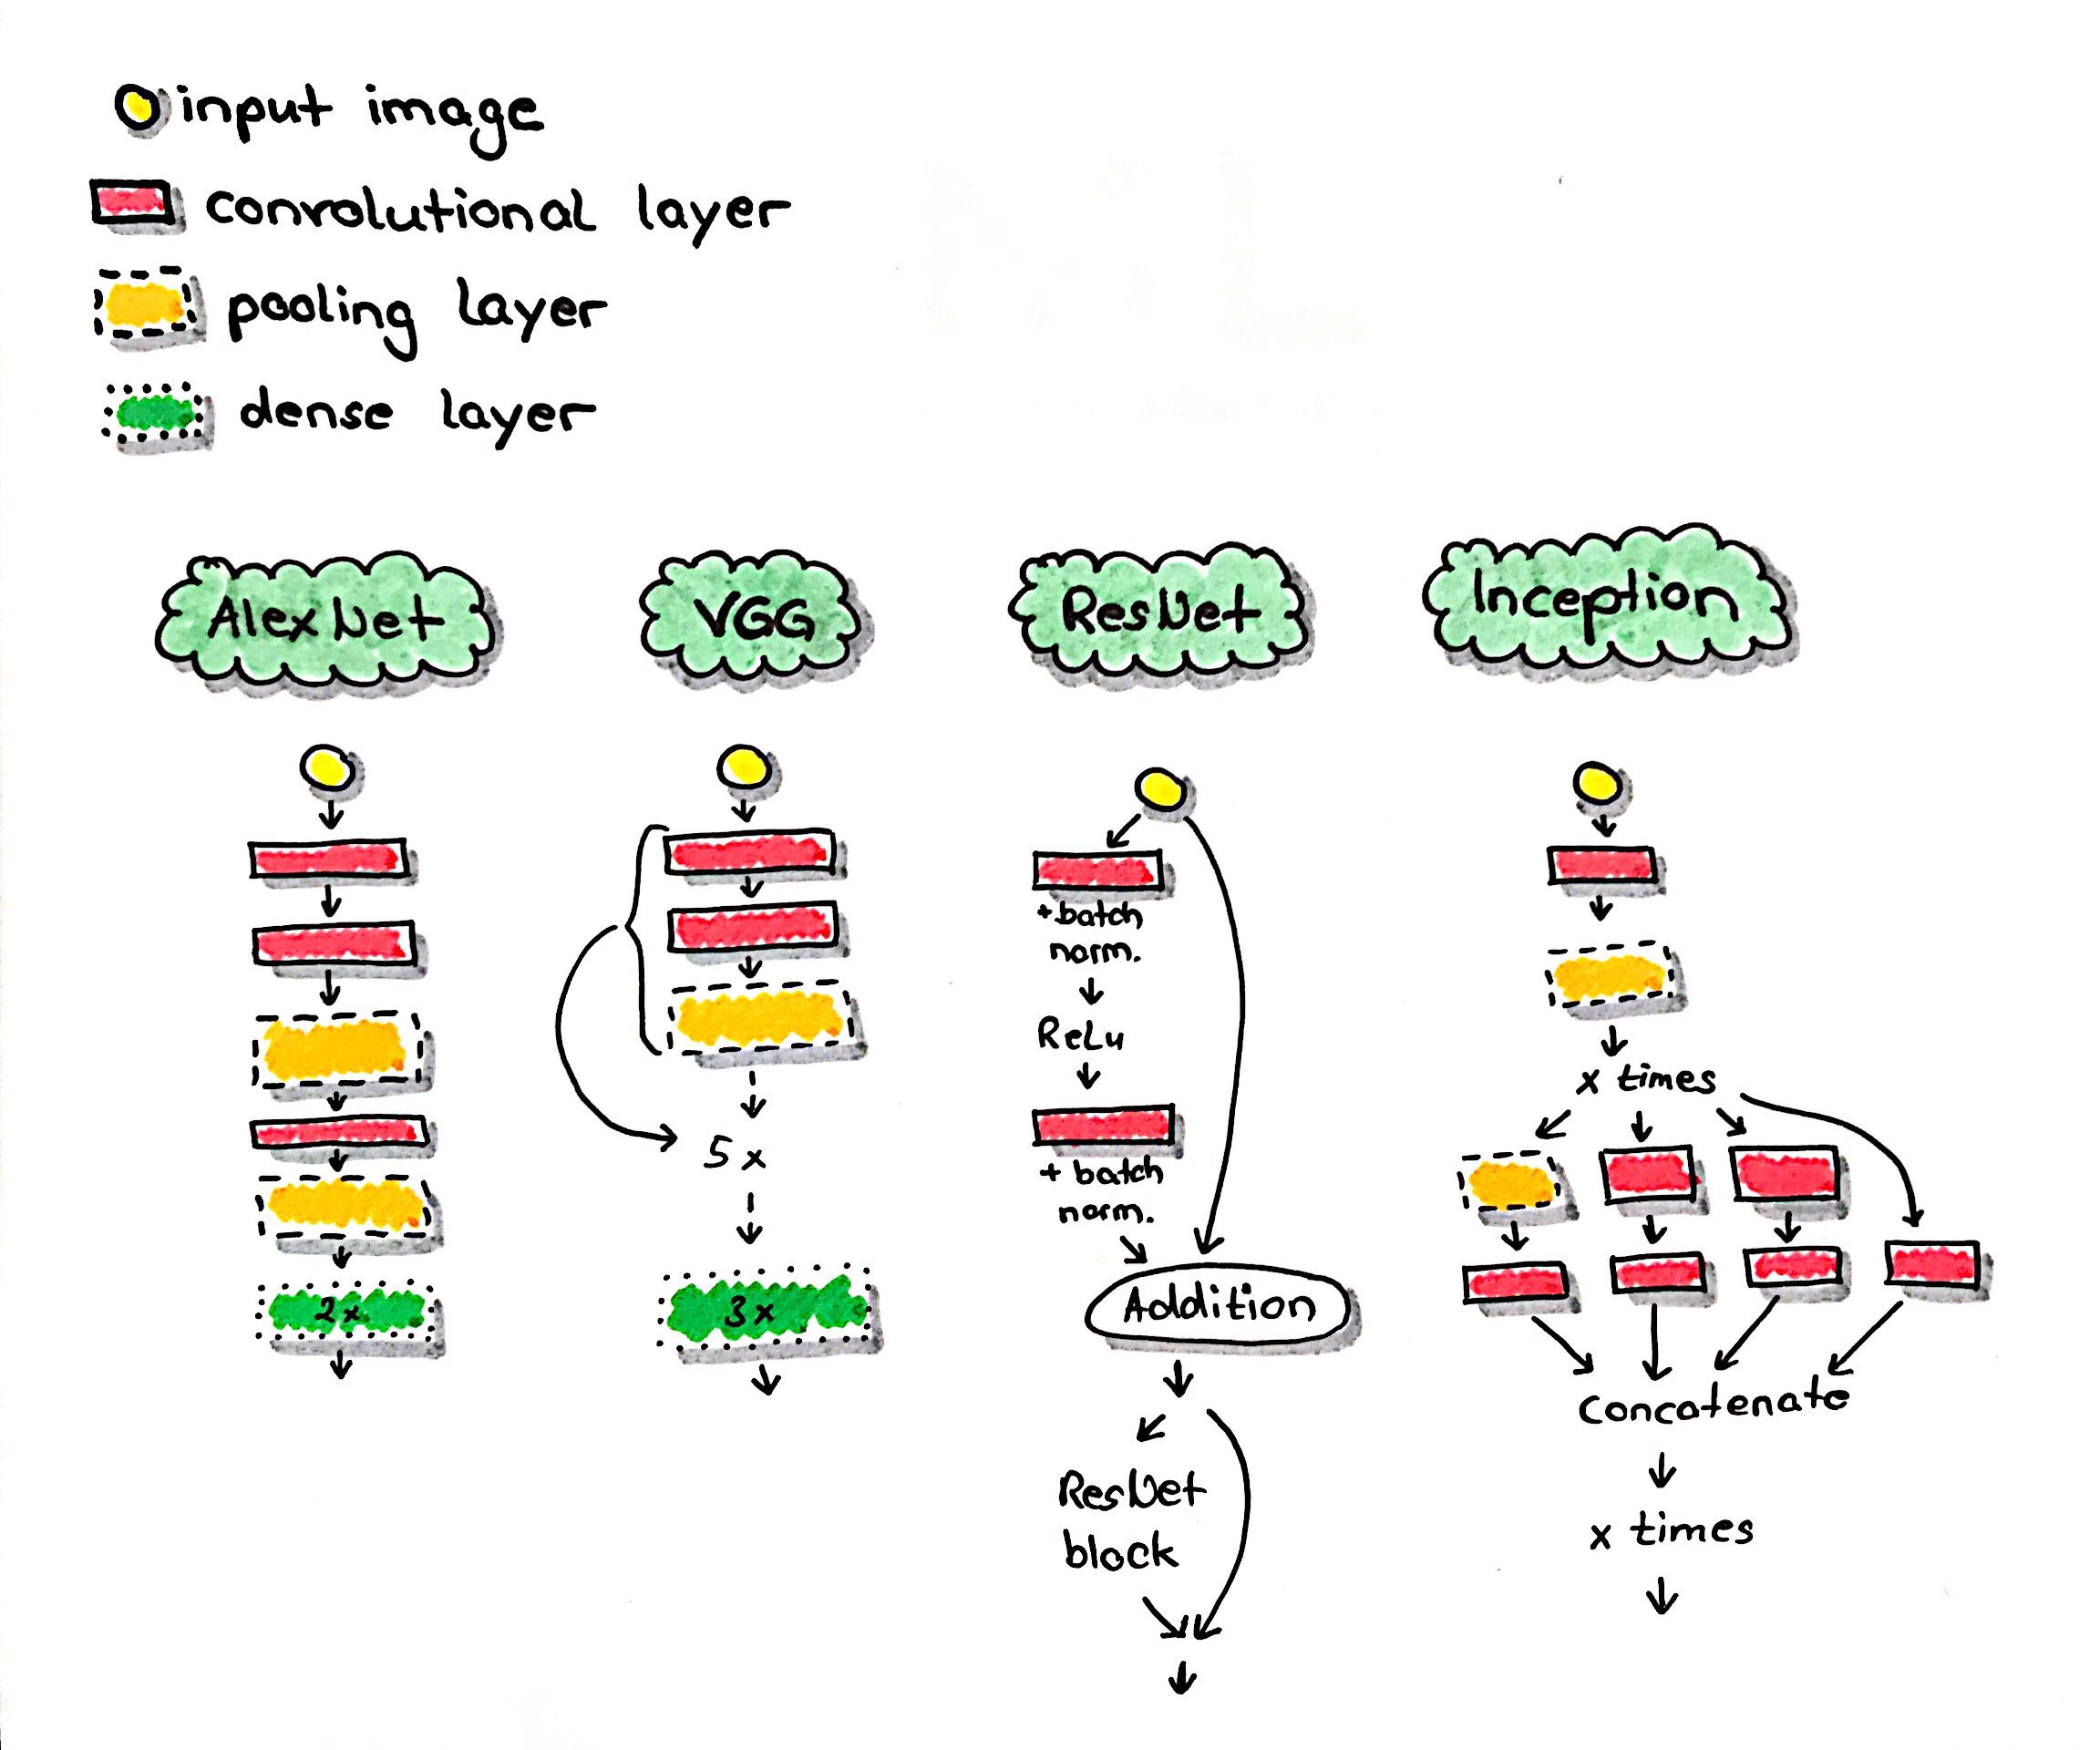 input image
convolutional layer
pooling layer
dense layer
AlexNet
2x
VGG
5x
3x
ResNet
+ batch
norm.
ReLu
+ batch
norm.
Addition
ResNet
block
Inception
x times
Concatenate
x times